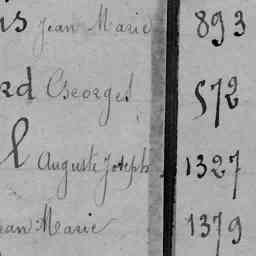 ns Jean Marie 893
rd Georges 572
l Auguste Joseph 1327
ean Marie 1379